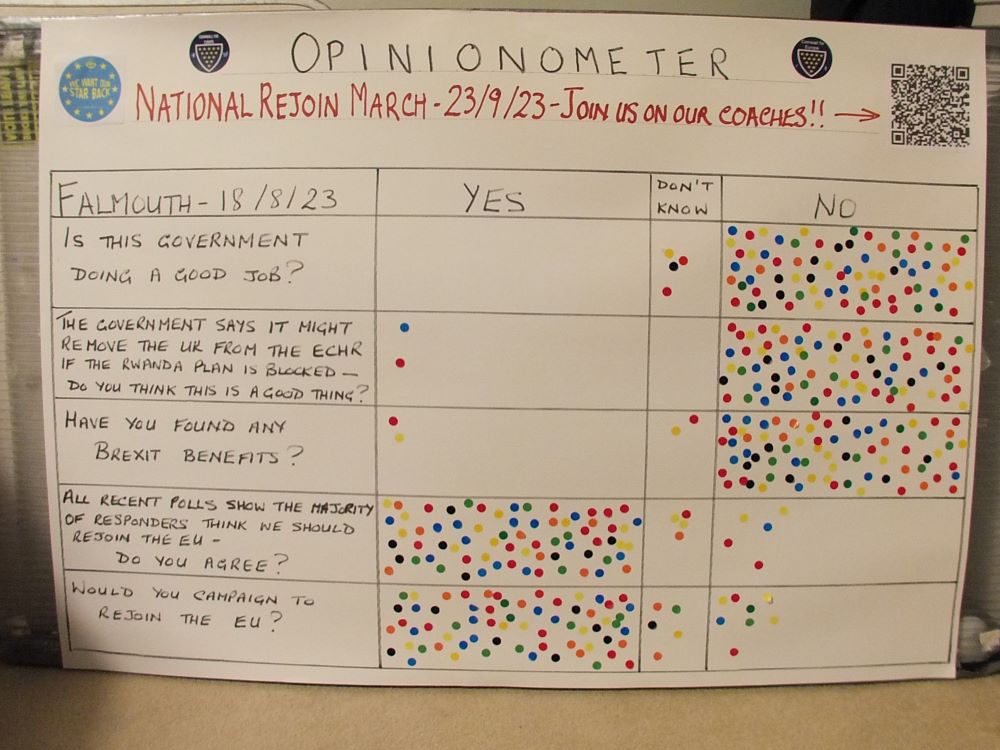 OPINIONOMETER
WE WANT OUR
STAR BACK
NATIONAL REJOIN MARCH - 23/9/23 - JOIN US ON OUR COACHES!! →
FALMOUTH - 18/8/23
YES
DON'T
KNOW
NO
IS THIS GOVERNMENT
DOING A GOOD JOB?
THE GOVERNMENT SAYS IT MIGHT
REMOVE THE UK FROM THE ECHR
IF THE RWANDA PLAN IS BLOCKED —
DO YOU THINK THIS IS A GOOD THING?
HAVE YOU FOUND ANY
BREXIT BENEFITS?
ALL RECENT POLLS SHOW THE MAJORITY
OF RESPONDERS THINK WE SHOULD
REJOIN THE EU -
DO YOU AGREE?
WOULD YOU CAMPAIGN TO
REJOIN THE EU?